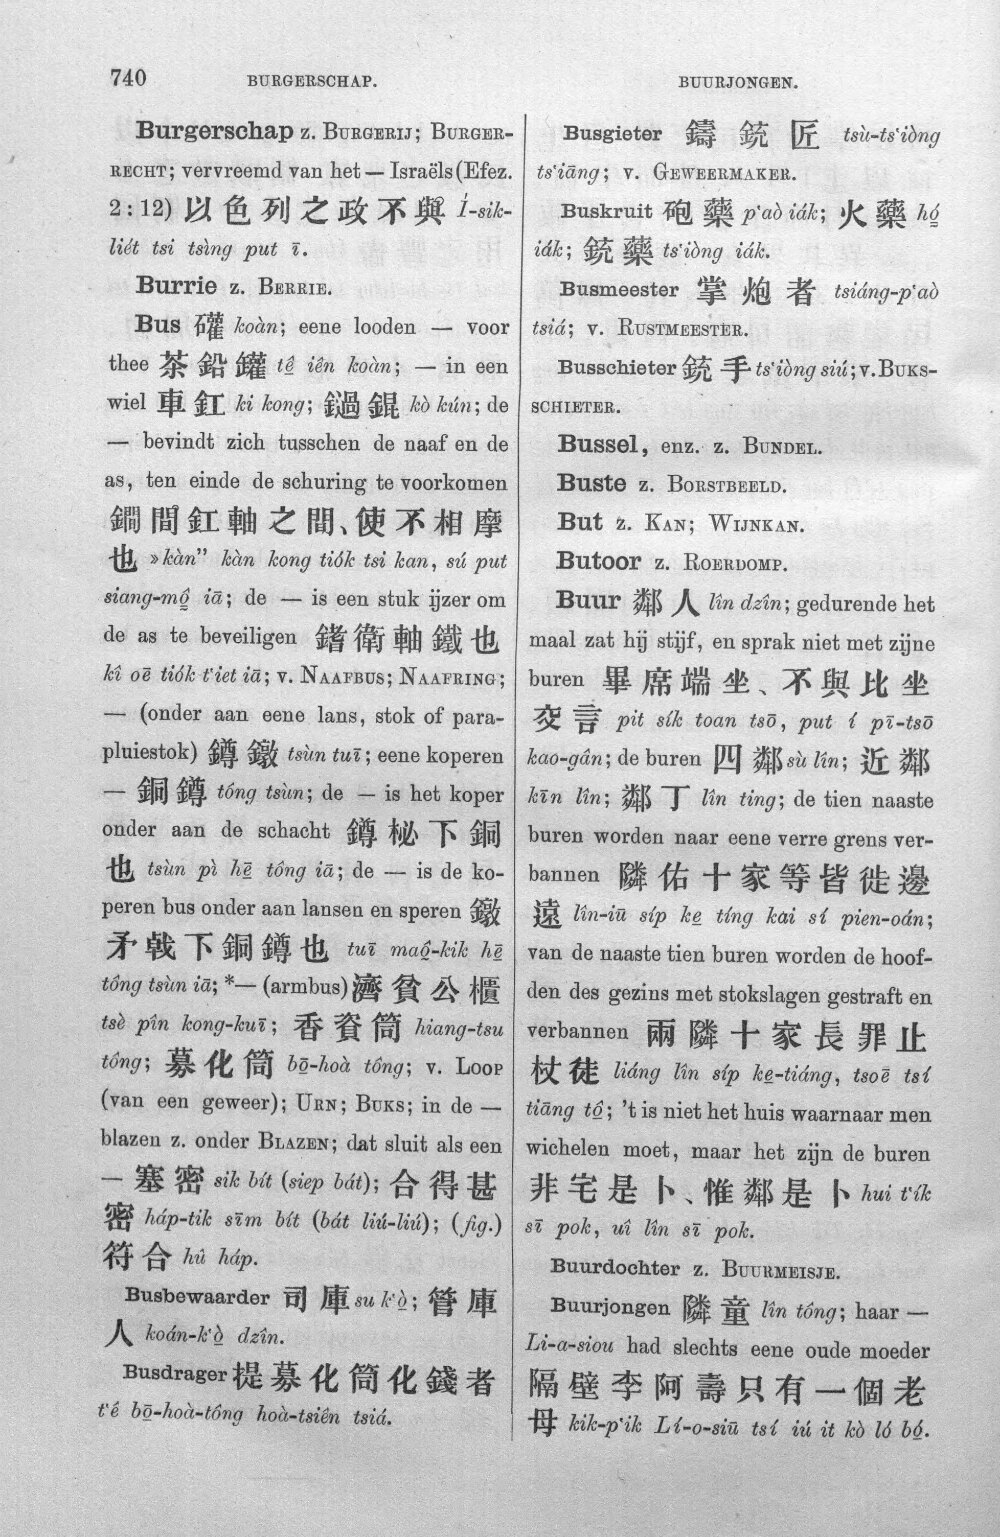 740
BURGERSCHAP.
BUURJONGEN.
Burgerschap z. BURGERIJ; BURGER-
RECHT; vervreemd van het — Israëls (Efez.
2 : 12) 以色列之政不與 Í-sik-
liét tsi tsìng put ī.
Burrie z. BERRIE.
Bus 礶 koàn; eene looden — voor
thee 茶鉛罐 tê iên koàn; — in een
wiel 車釭 ki kong; 鐹錕 kò kún; de
— bevindt zich tusschen de naaf en de
as, ten einde de schuring te voorkomen
鐧間釭軸之間、使不相摩
也 »kàn” kàn kong tiók tsi kan, sú put
siang-mô iā; de — is een stuk ijzer om
de as te beveiligen 鍺衛軸鐵也
kî oē tiók t‘iet iā; v. NAAFBUS; NAAFRING;
— (onder aan eene lans, stok of para-
pluiestok) 鐏鐓 tsùn tuī; eene koperen
— 銅鐏 tóng tsùn; de — is het koper
onder aan de schacht 鐏柲下銅
也 tsùn pì hē tông iā; de — is de ko-
peren bus onder aan lansen en speren 鐓
矛戟下銅鐏也 tuī maô-kik hē
tông tsùn iā; *— (armbus) 濟貧公櫃
tsè pîn kong-kuī; 香資筒 hiang-tsu
tông; 募化筒 bō-hoà tông; v. LOOP
(van een geweer); URN; BUKS; in de —
blazen z. onder BLAZEN; dat sluit als een
— 塞密 sik bít (siep bát); 合得甚
密 háp-tik sīm bít (bát liú-liú); (fig.)
符合 hû háp.
Busbewaarder 司庫 su k‘ò; 管庫
人 koán-k‘ò dzîn.
Busdrager 提募化筒化錢者
t‘ê bō-hoà-tông hoà-tsiên tsiá.
Busgieter 鑄銃匠 tsù-ts‘iòng
ts‘iāng; v. GEWEERMAKER.
Buskruit 砲藥 p‘aò iák; 火藥 hó
iák; 銃藥 ts‘iòng iák.
Busmeester 掌炮者 tsiáng-p‘aò
tsiá; v. RUSTMEESTER.
Busschieter 銃手 ts‘iòng siú; v. BUKS-
SCHIETER.
Bussel, enz. z. BUNDEL.
Buste z. BORSTBEELD.
But z. KAN; WIJNKAN.
Butoor z. ROERDOMP.
Buur 鄰人 lîn dzîn; gedurende het
maal zat hij stijf, en sprak niet met zijne
buren 畢席端坐、不與比坐
交言 pit sík toan tsō, put í pī-tsō
kao-gân; de buren 四鄰 sù lîn; 近鄰
kīn lîn; 鄰丁 lîn ting; de tien naaste
buren worden naar eene verre grens ver-
bannen 隣佑十家等皆徙邊
遠 lîn-iū síp ke tíng kai sí pien-oán;
van de naaste tien buren worden de hoof-
den des gezins met stokslagen gestraft en
verbannen 兩隣十家長罪止
杖徒 liáng lîn síp ke-tiáng, tsoē tsí
tiāng tô; 't is niet het huis waarnaar men
wichelen moet, maar het zijn de buren
非宅是卜、惟鄰是卜 hui t‘ík
sī pok, uî lîn sī pok.
Buurdochter z. BUURMEISJE.
Buurjongen 隣童 lîn tông; haar —
Li-a-siou had slechts eene oude moeder
隔壁李阿壽只有一個老
母 kik-p‘ik Lí-o-siū tsí iú it kò ló bó.